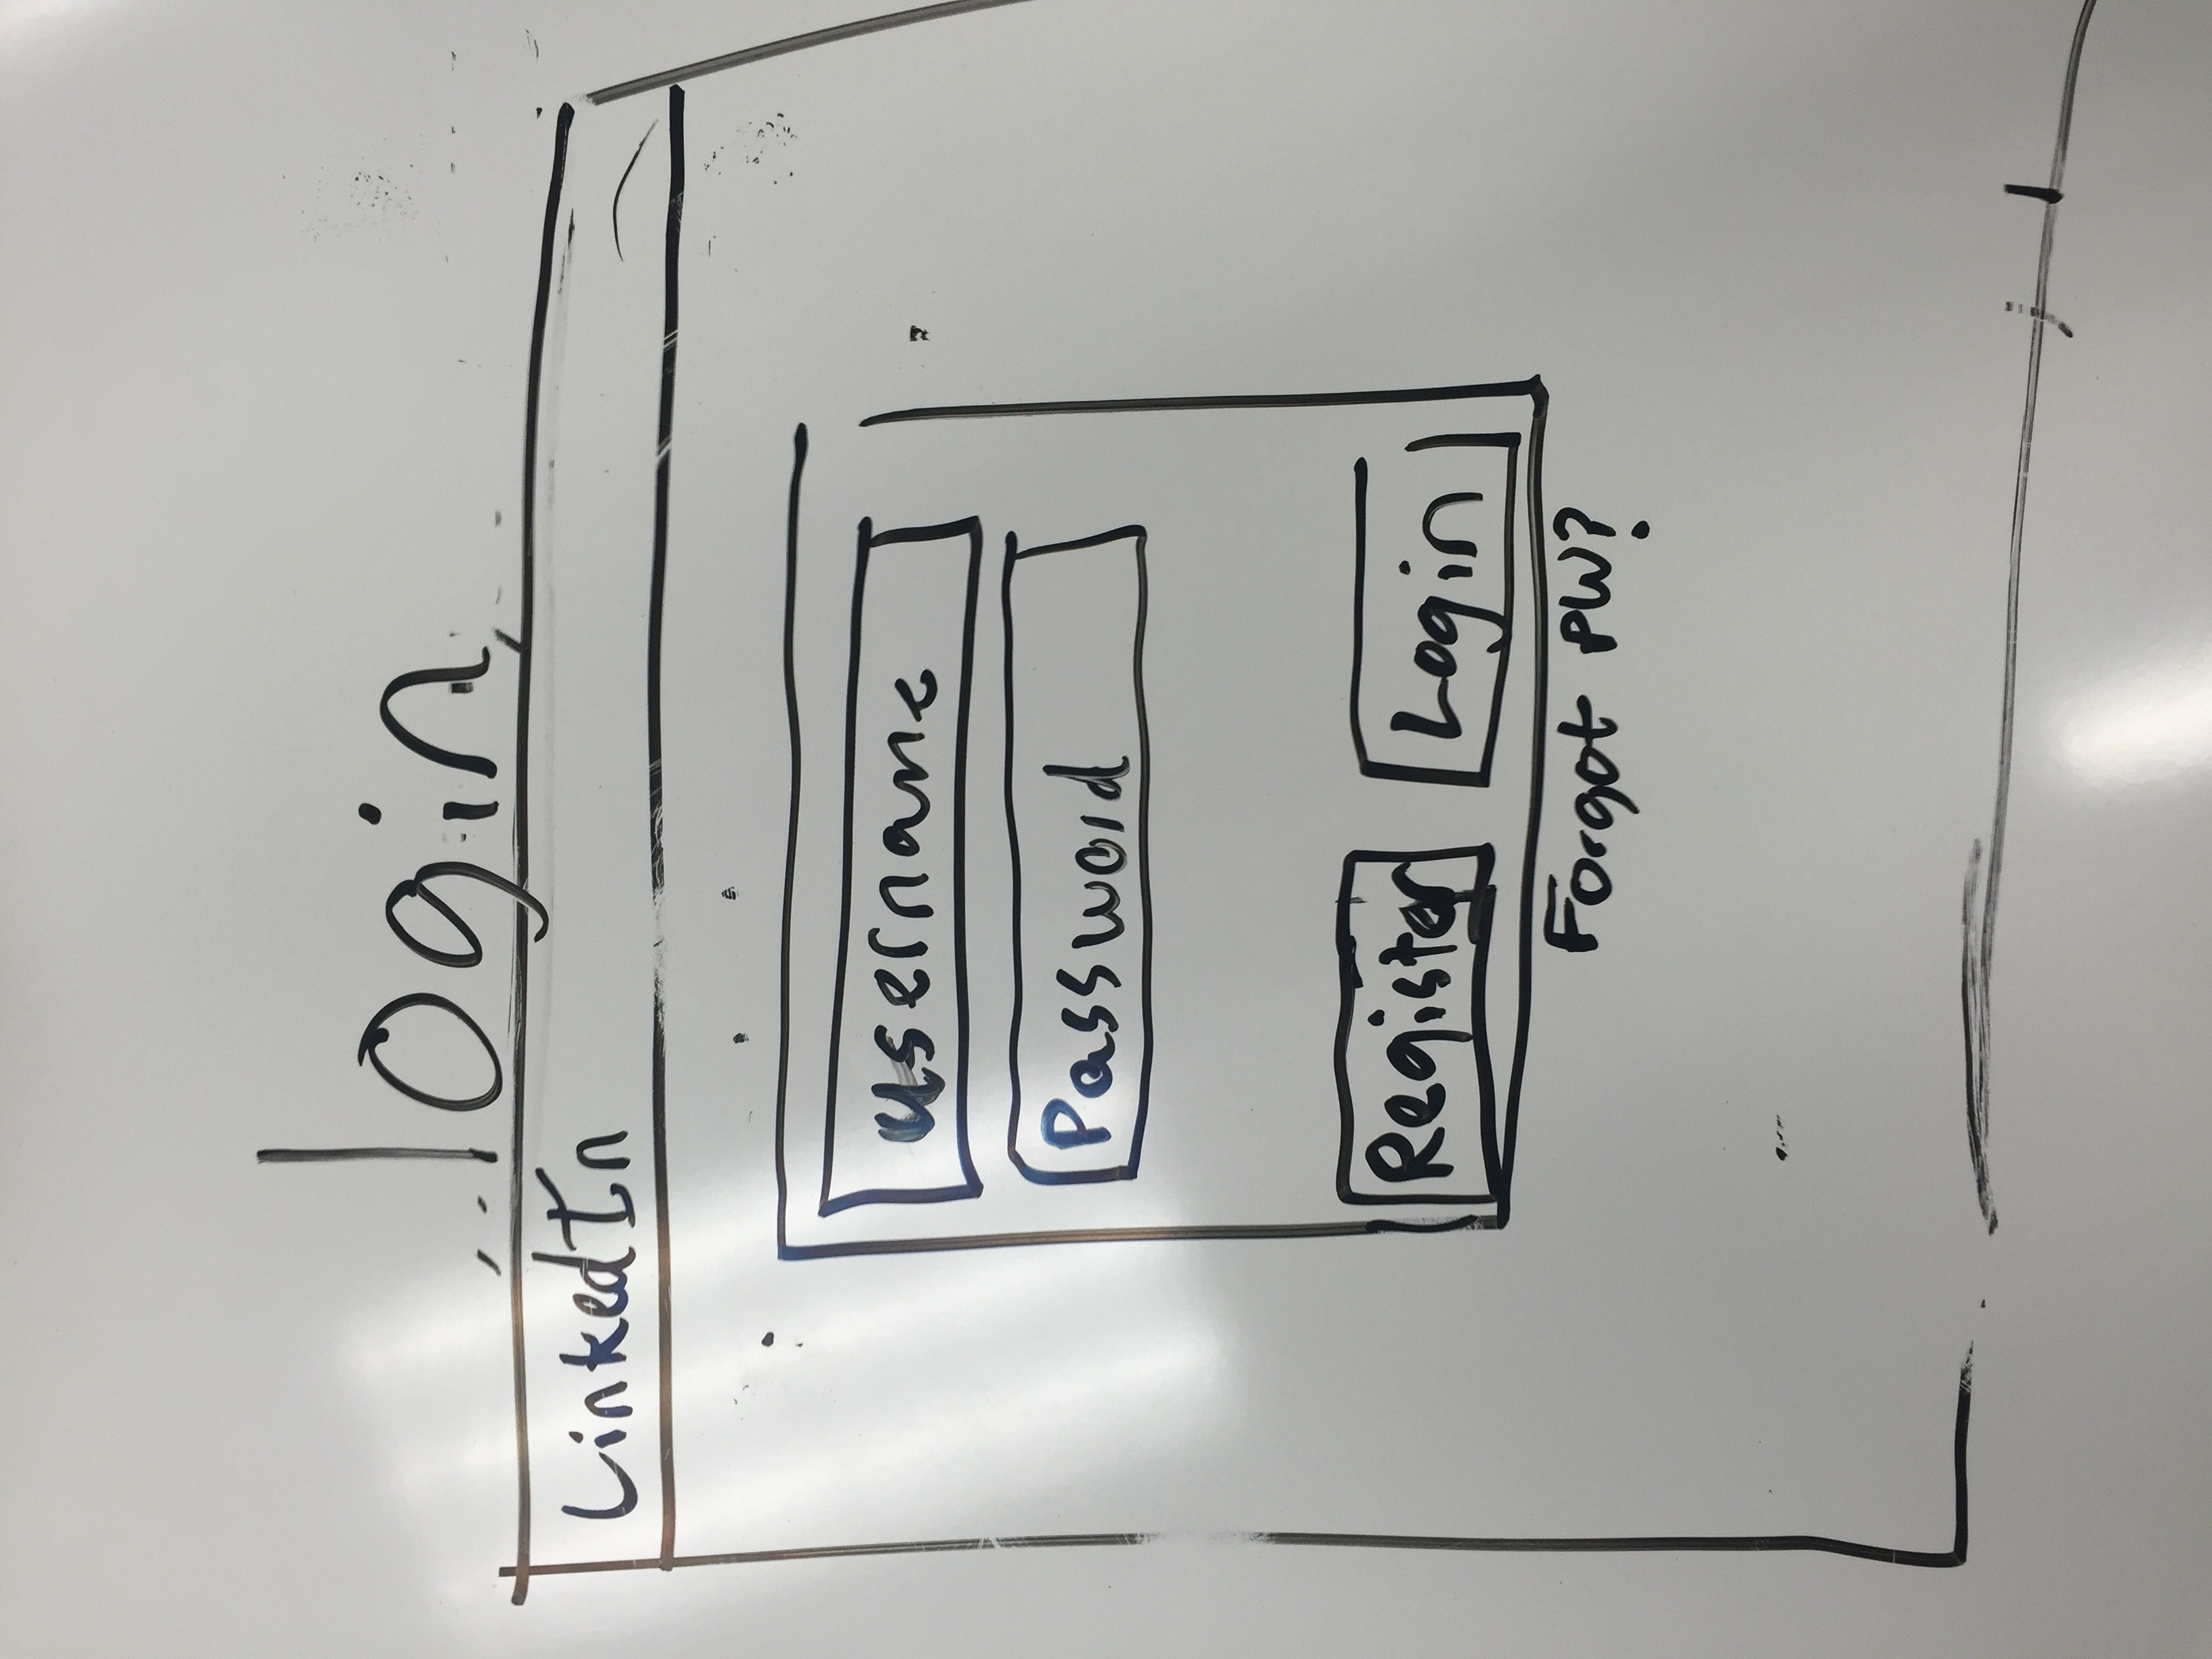 login
LinkedIn
username
Password
Register Login
Forgot PW?